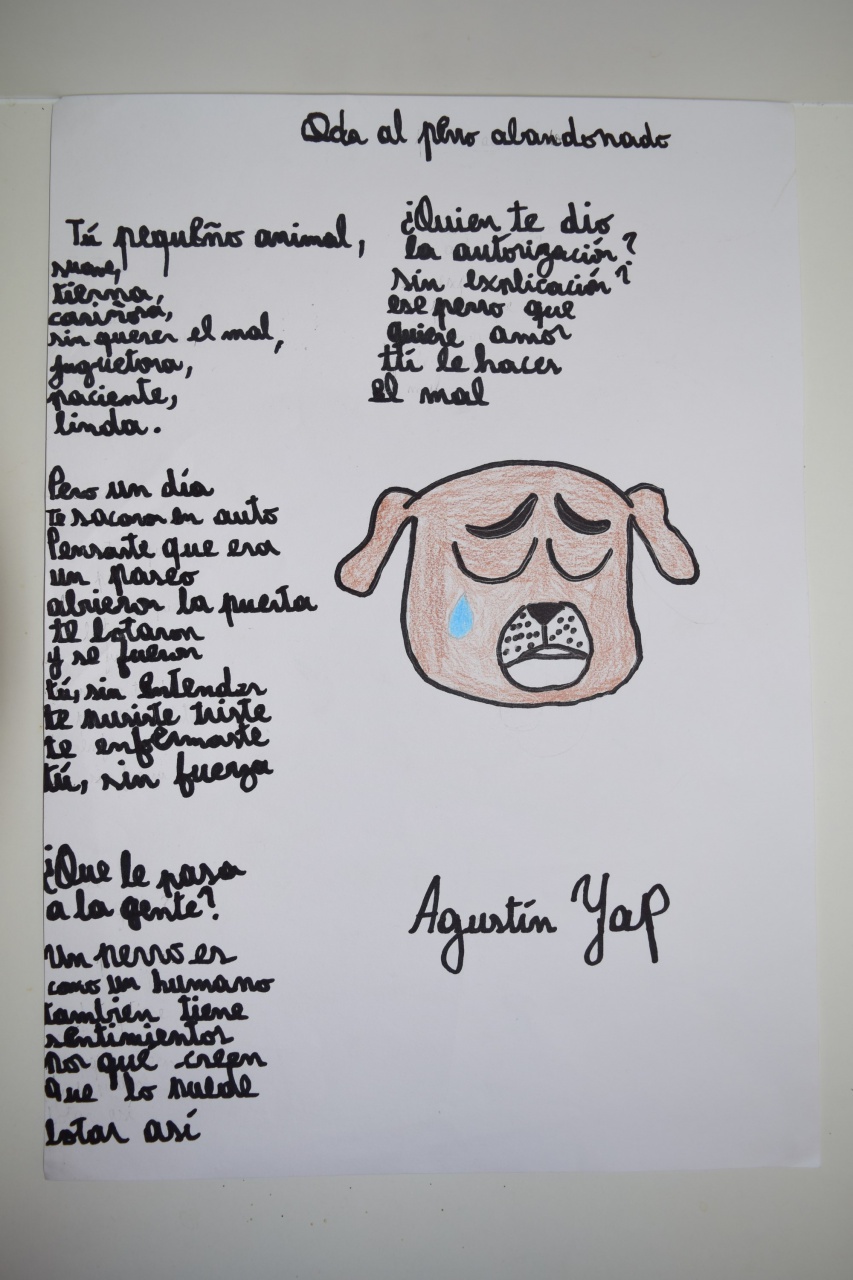 Oda al perro abandonado
Tú pequeño animal,
suave,
tierna,
cariñosa,
sin querer el mal,
juguetora,
paciente,
linda.
Pero un día
te sacaron en auto
Pensaste que era
un paseo
abrieron la puerta
te botaron
y se fueron
tú, sin entender
te pusiste triste
te enfermaste
tú, sin fuerza
¿Que le pasa
a la gente?
Un perro es
como un humano
tambien tiene
sentimientos
por qué creen
que lo puede
botar así
¿Quien te dio
la autorización?
sin explicación?
ese perro que
quiere amor
tú le haces
el mal
Agustín Yap